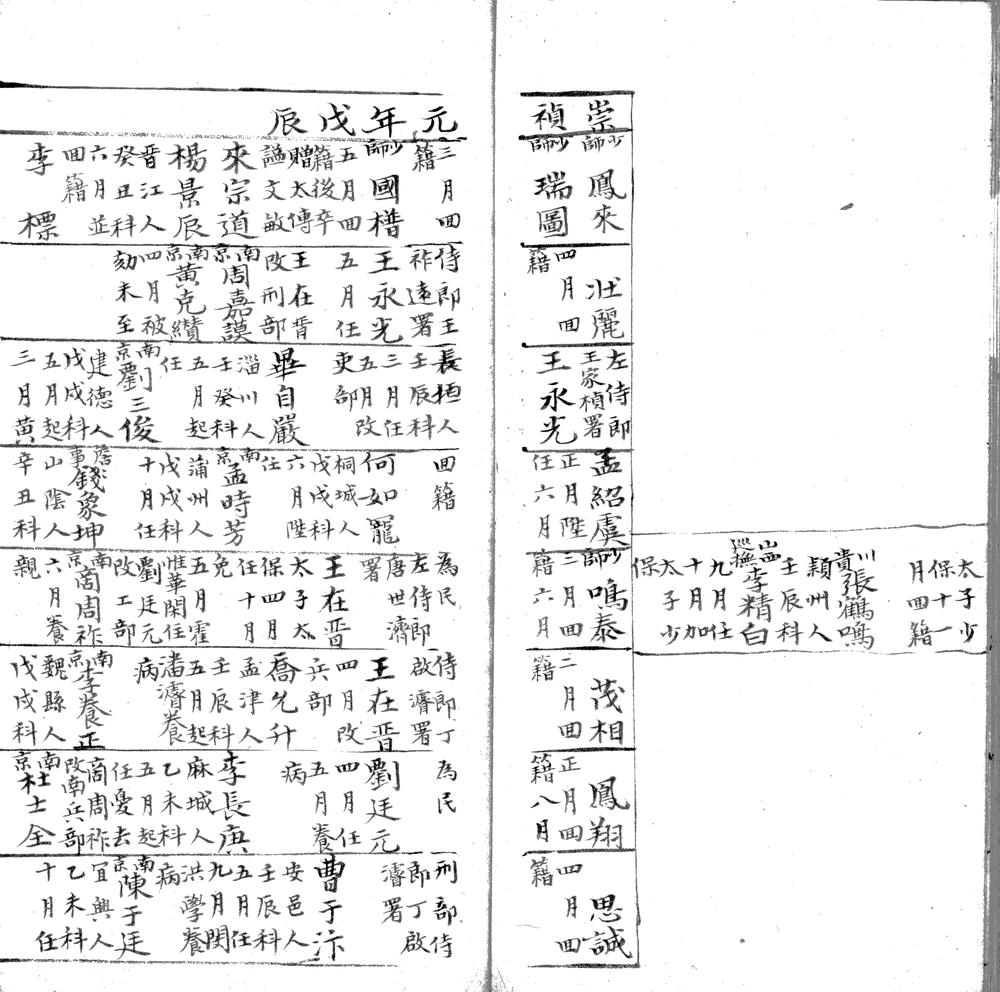 太子少
保十一
月回籍
川貴張鶴鳴
潁州人
壬辰科
李精白
九月任
十月加
太子少
保
崇
禎
少師鳳來
少師瑞圖
壯麗
四月回
籍
左侍郎
王家楨署
王永光
孟紹虞
正月陞
任六月
少師鳴泰
三月回
籍六月
茂相
二月回
籍
鳳翔
正月回
籍八月
思誠
四月回
籍
元年戊辰
三月回
籍
少師國𣚴
五月回
籍後卒
贈太傅
謚文敏
來宗道
楊景辰
晋江人
癸丑科
六月並
回籍
李標
侍郎王
祚遠署
王永光
五月任
王在晋
改刑部
南京周嘉謨
南京黃克纘
四月被
劾未至
長垣人
壬辰科
三月任
五月改
吏部
畢自嚴
淄川人
壬癸科
五月起
任
南京劉三俊
建德人
戊戌科
五月起
三月黃
回籍
何如寵
桐城人
戊戌科
六月陞
任
南京孟時芳
蒲州人
戊戌科
十月任
詹事錢象坤
山陰人
辛丑科
為民
左侍郎
唐世濟
署
王在晋
太子太
保四月
任十月
免
五月霍
惟華閑住
劉廷元
改工部
南京商周祚
六月養
親
侍郎丁
啟濬署
王在晋
四月改
兵部
喬允升
孟津人
壬辰科
五月起
潘濬養
病
南京李養正
魏縣人
戊戌科
為民
劉廷元
四月任
五月養
病
李長庚
麻城人
乙未科
五月起
任憂去
商周祚
改南兵部
南京杜士全
刑部侍
郎丁啟
濬署
曹于汴
安邑人
壬辰科
五月任
九月閔
洪學養
病
南京陳于廷
宜興人
乙未科
十月任